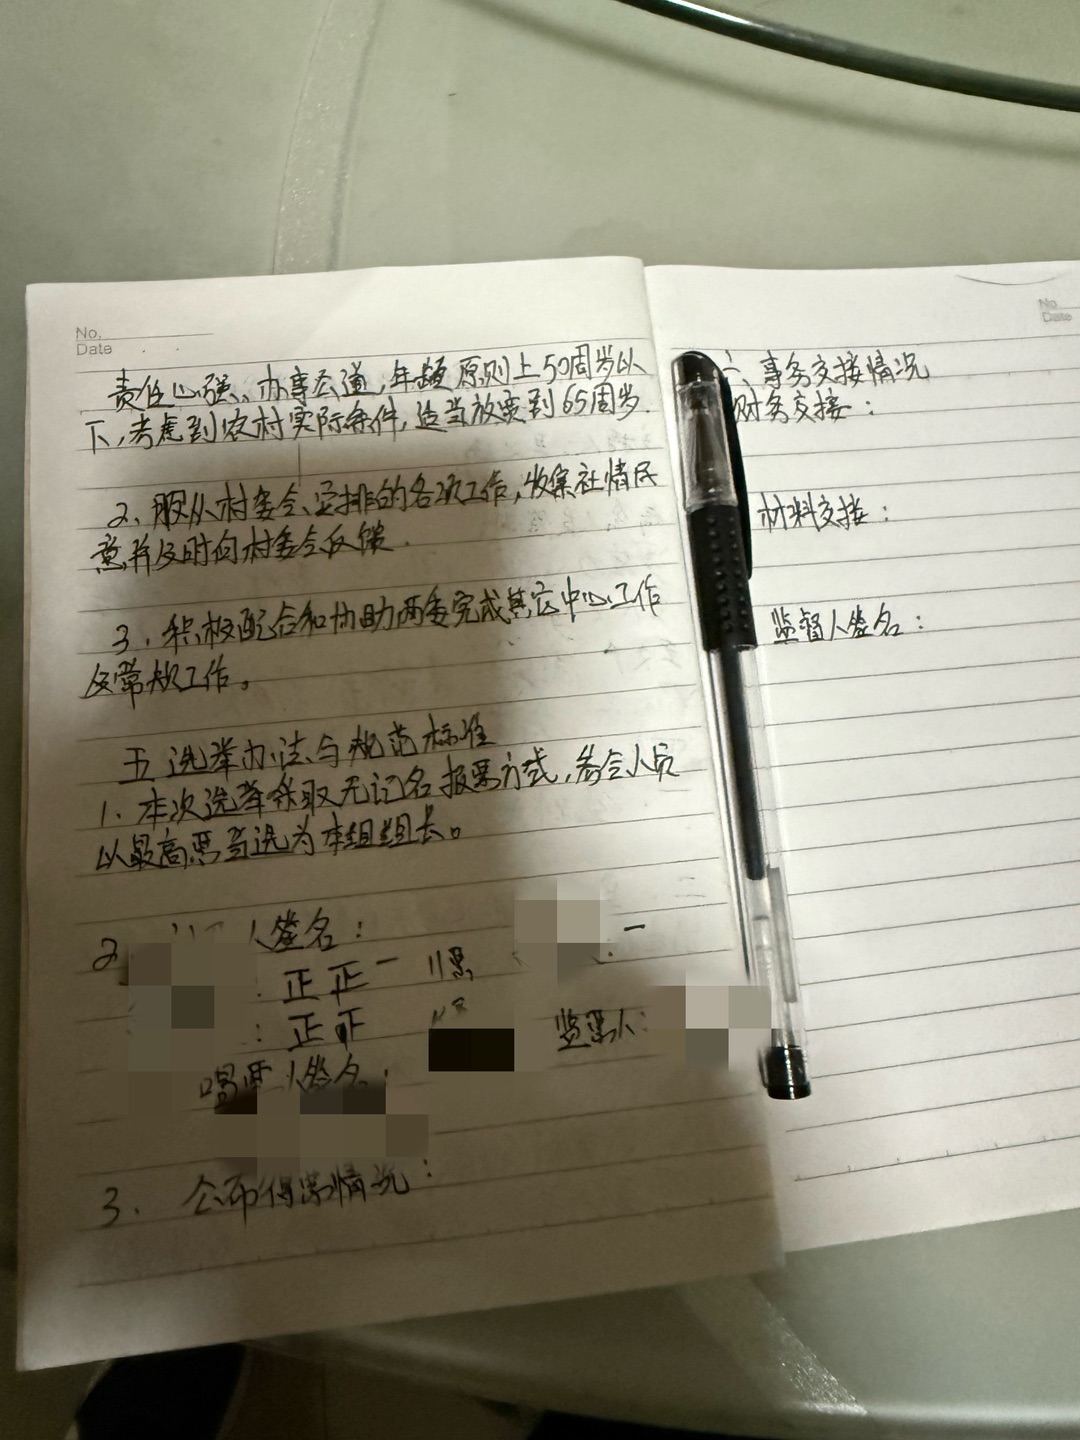 No.
Date
责任心强、办事公道,年龄原则上50周岁以
下,考虑到农村实际条件,适当放宽到65周岁.
2、服从村委会安排的各项工作,收集社情民
意并及时向村委会反馈.
3、积极配合和协助两委完成其它中心工作
及常规工作。
五 选举办法与规范标准
1、本次选举采取无记名投票方式,参会人员
以最高票当选为本组组长。
2 人签名:
: 正正一 11票 一
: 正正 监票人:
唱票人签名:
3、公布得票情况:
No.
Date
六、事务交接情况
财务交接:
材料交接:
监督人签名: